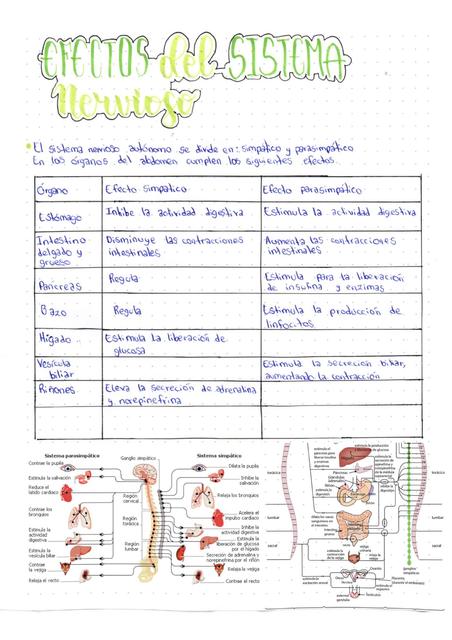 EFECTOS del SISTEMA
Nervioso
El sistema nervioso autónomo se divide en: simpático y parasimpático
En los órganos del abdomen cumplen los siguientes efectos.
Órgano Efecto simpático Efecto parasimpático
Estómago Inhibe la actividad digestiva Estimula la actividad digestiva
Intestino Disminuye las contracciones Aumenta las contracciones
delgado y intestinales intestinales
grueso
Pancreas Regula Estimula para la liberación
de insulina y enzimas
Bazo Regula Estimula la producción de
linfocitos
Hígado Estimula la liberación de
glucosa
Vesícula Estimula la secreción biliar,
biliar aumentando la contracción
Riñones Eleva la secreción de adrenalina
y norepinefrina
Sistema parasimpático Ganglio simpático Sistema simpático
Contrae la pupila Dilata la pupila
Estimula la salivación Inhibe la
salivación
Reduce el
latido cardíaco
Región
cervical
Relaja los bronquios
Contrae los
bronquios
Región
torácica
Acelera el
impulso cardíaco
Estimula la
actividad
digestiva
Inhibe la
actividad digestiva
Región
lumbar
Estimula la
liberación de glucosa
por el hígado
Estimula la
vesícula biliar
Secreción de adrenalina y
norepinefrina por el riñón
Contrae
la vejiga
Relaja la vejiga
Relaja el recto Contrae el recto
lumbar
sacral
lumbar
sacral
Ovarios
Testículos